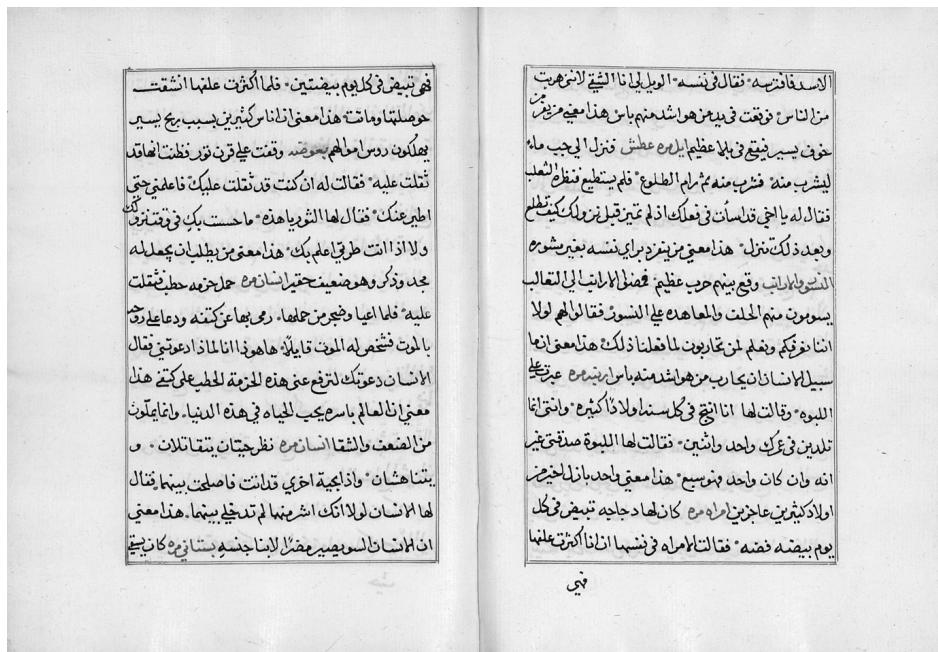 الاسد فافترسه فقال في نفسه الويل لي انا الشقي لانني هربت
من الناس فوقعت في يد من هو اشد منهم باس هذا معني من يفر من
خوف يسير فيقع في بلاء عظيم ايل مره عطش فنزل الي جب ماء
ليشرب منه فشرب منه ثم رام الطلوع فلم يستطيع فنظره الثعلب
فقال له يا اخي قد اسأت في فعلك اذ لم تميز قبل نزولك كيف تطلع
وبعد ذلك تنزل هذا معني من ينفرد براي نفسه بغير مشوره
النسور والارانب وقع بينهم حرب عظيم فمضوا الارانب الي الثعالب
يسومون منهم الحلف والمعاهده علي النسور فقالوا لهم لولا
اننا نعرفكم ونعلم لمن تحاربون لما فعلنا ذلك هذا معني ان ما
سبيل الانسان ان يحارب من هو اشد منه باس ارنبه مره عبرت علي
اللبوه وقالت لها انا انتج في كل سنه اولاداً كثيره وانتي انما
تلدين في عمرك واحد واثنين فقالت لها اللبوة صدقتي غير
انه وان كان واحد فهو سبع هذا معني واحد بازل اخير من
اولاد كثيرين عاجزين امراه مره كان لها دجاجه تبيض في كل
يوم بيضه فضه فقالت الامراه في نفسها ان انا اكثرت علفها
فهي
فهي تبيض في كل يوم بيضتين فلما اكثرت علفها انشقت
حوصلتها وماتت هذا معني ان اناس كثيرين بسبب ربح يسير
يهلكون روس اموالهم بعوضه وقفت علي قرن ثور فظنت انها قد
ثقلت عليه فقالت له ان كنت قد ثقلت عليك فاعلمني حتي
اطير عنك فقال لها الثور يا هذه ما حست بك في وقت نزولك
ولا اذا انت طرتي اعلم بك هذا معني من يطلب ان يجعل له
مجد وذكر وهو ضعيف حقير انسان مره حمل حزمه حطب فثقلت
عليه فلما اعيا وضجر من حملها رمي بها عن كتفه ودعا علي روحه
بالموت فشخص له الموت قايلاً ها هوذا انا لماذا دعوتني فقال
الانسان دعوتك لترفع عني هذه الحزمة الحطب علي كتفي هذا
معني ان العالم باسره يحب الحياه في هذه الدنيا وانما يملون
من الضعف والشقا انسان مره نظر حيتان يتقاتلان و
يتناهشان واذا بحية اخري قد اتت فاصلحت بينهما فقال
لها الانسان لولا انك اشر منهما لم تدخلي بينهما هذا معني
ان الانسان السو يصير مضراً لابنا جنسه بستاني مره كان يسقي